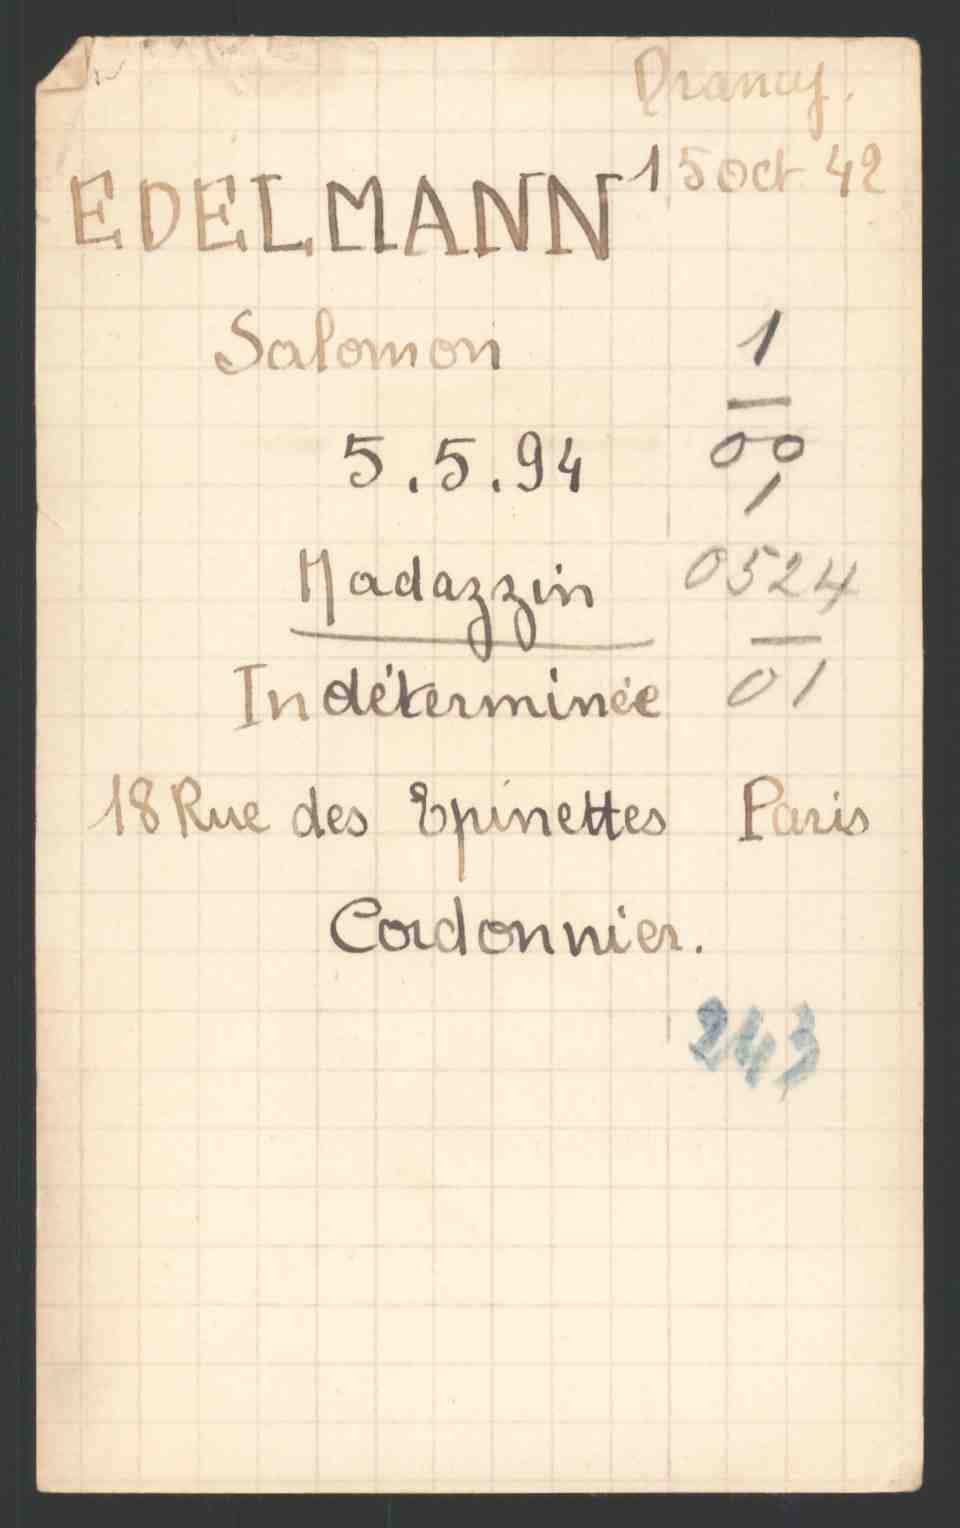 Drancy.
15 oct. 42
EDELMANN
Salomon
1
—
5.5.94
00
1
Madazzin
0524
—
Indéterminée
01
18 Rue des Epinettes Paris
Cordonnier.
243